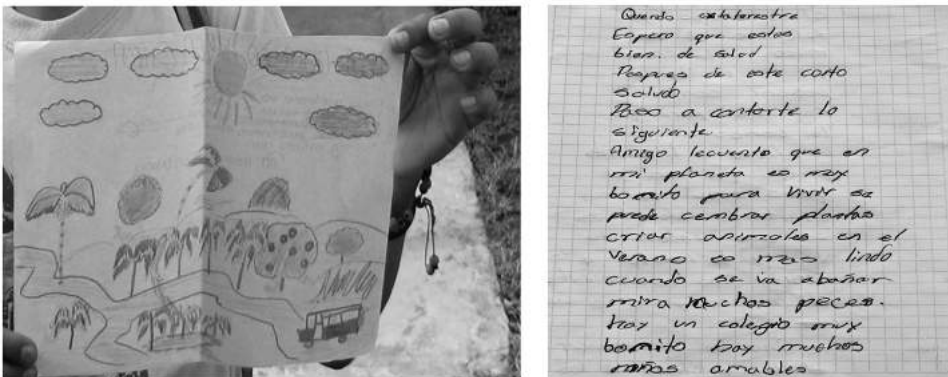 Querido extaterestre
Espero que estes
bien. de salud
Despues de este corto
saludo
Paso a contarte lo
siguiente
Amigo lecuento que en
mi planeta es muy
bonito para vivir se
puede cembrar plantas
criar animales en el
verano es mas lindo
cuando se va abañar
mira muchos peces.
hay un colegio muy
bonito hay muchos
niños amables